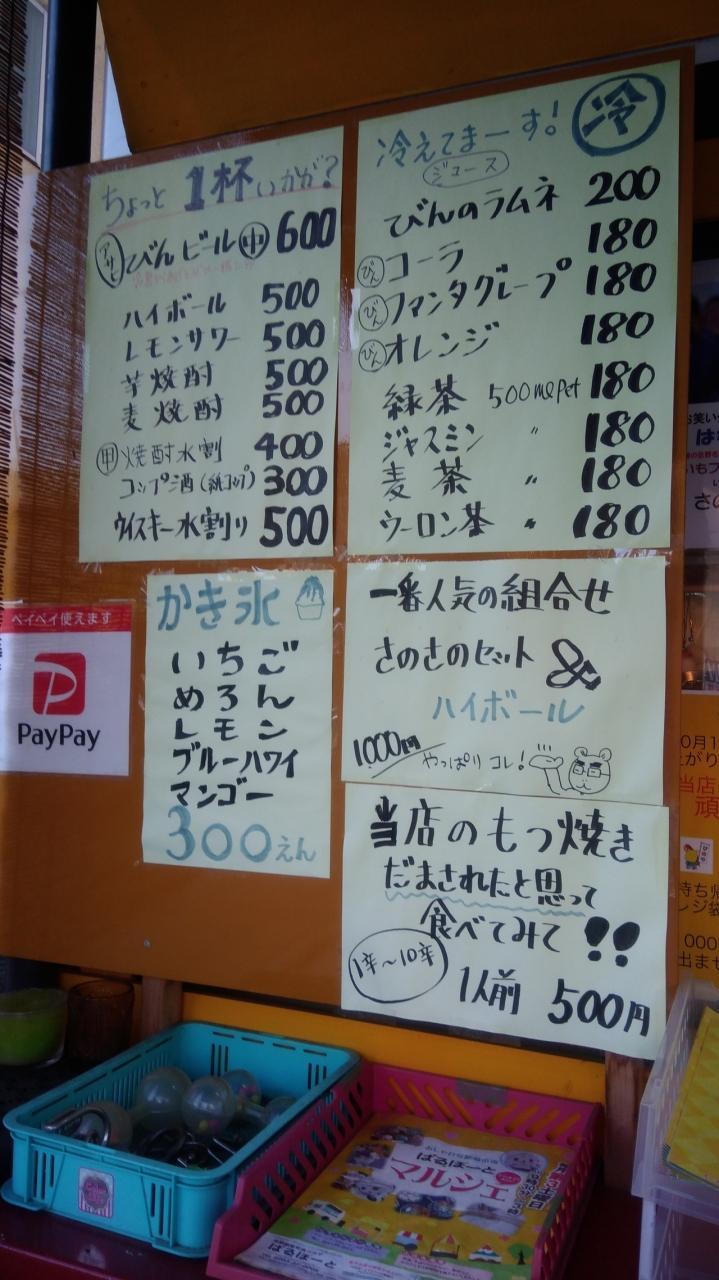 ちょっと 1杯 いかが?
アサヒ びんビール 中 600
ハイボール 500
レモンサワー 500
芋焼酎 500
麦焼酎 500
甲 焼酎水割 400
コップ酒(紙コップ) 300
ウイスキー水割り 500
冷えてまーす! 冷
ジュース
びんのラムネ 200
びん コーラ 180
びん ファンタグレープ 180
びん オレンジ 180
緑茶 500mlpet 180
ジャスミン 〃 180
麦茶 〃 180
ウーロン茶 〃 180
ペイペイ使えます
PayPay
かき氷
いちご
めろん
レモン
ブルーハワイ
マンゴー
300えん
一番人気の組合せ
さのさのセット &
ハイボール
1000円 やっぱりコレ!
当店のもつ焼き
だまされたと思って
食べてみて!!
1辛〜10辛
1人前 500円
ぱるぽーと
マルシェ
ぱるぽーと
お笑い
は
いもフ
さの
0月1
がり
当店
頑
持ち帰
レジ袋
000
出ませ